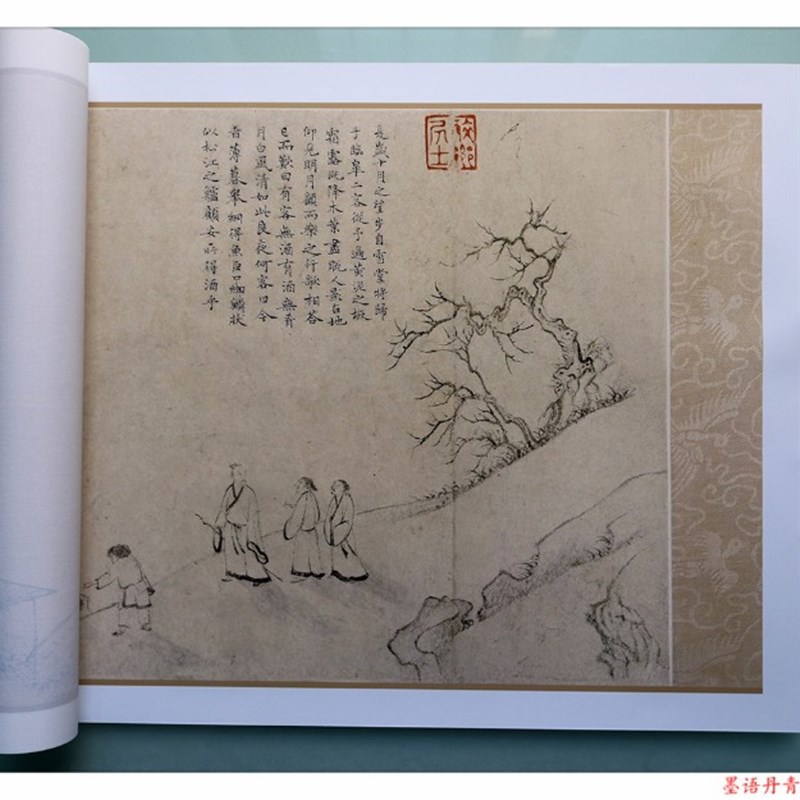 是歲十月之望步自雪堂將歸
于臨皋二客從予過黃泥之坂
霜露既降木葉盡脫人影在地
仰見明月顧而樂之行歌相答
已而歎曰有客無酒有酒無肴
月白風清如此良夜何客曰今
者薄暮舉網得魚巨口細鱗狀
似松江之鱸顧安所得酒乎
墨语丹青